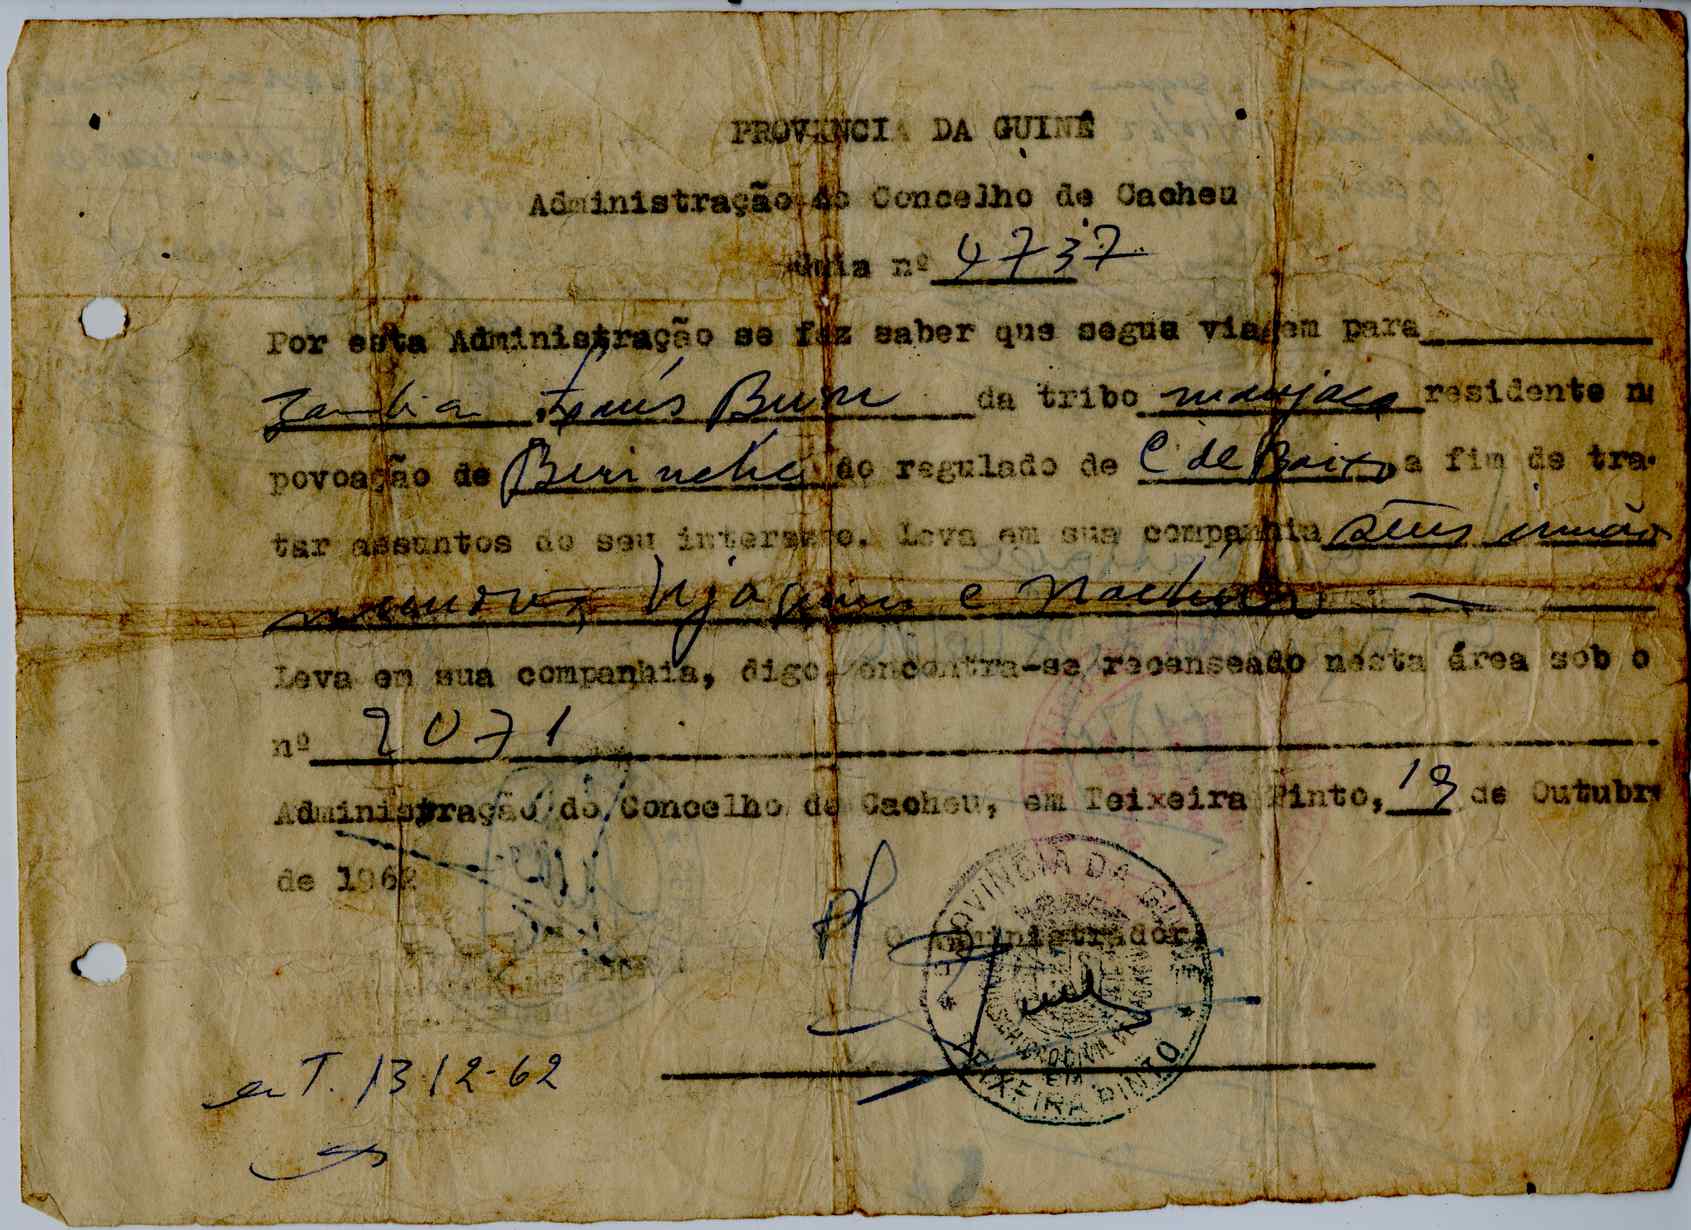 PROVINCIA DA GUINÉ
Administração do Concelho de Cacheu
Guia nº 4737
Por esta Administração se faz saber que segue viagem para
da tribo manjaca residente n
povoação de do regulado de C de Baixo a fim de tra-
tar assuntos do seu interesse. Leva em sua companhia seus irmãos
menores, e
Leva em sua companhia, digo, encontra-se recenseado nesta área sob o
nº 2071
Administração do Concelho de Cacheu, em Teixeira Pinto, 19 de Outubr
de 1962
O Administrador,
PROVINCIA DA GUINÉ
TEIXEIRA PINTO
13/12-62